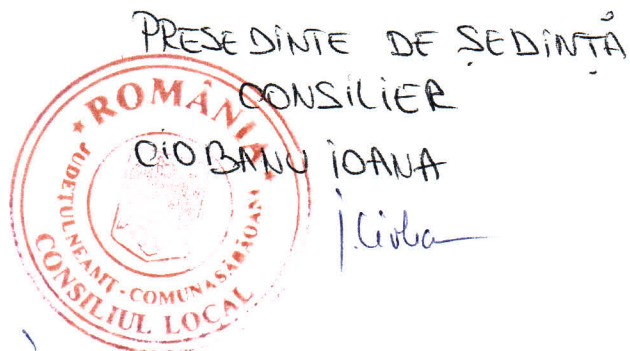 PRESEDINTE DE ȘEDINȚĂ
CONSILIER
CIOBANU IOANA
* ROMÂNIA *
JUDEŢUL NEAMŢ - COMUNA SĂBĂOANI
CONSILIUL LOCAL